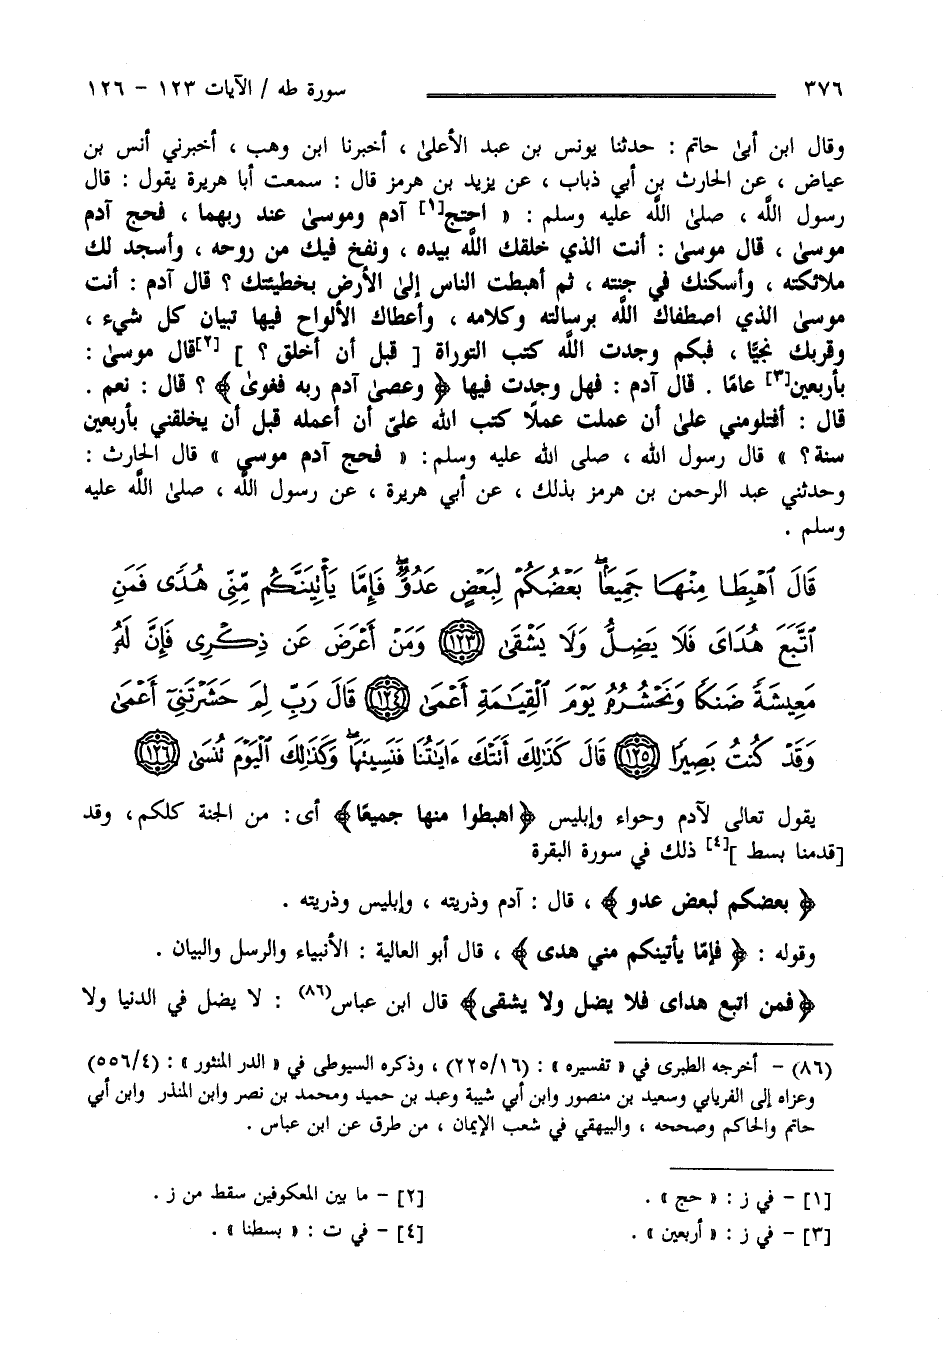 ٣٧٦ سورة طه / الآيات ١٢٣ - ١٢٦
وقال ابن أبىٰ حاتم : حدثنا يونس بن عبد الأعلىٰ ، أخبرنا ابن وهب ، أخبرني أنس بن
عياض ، عن الحارث بن أبي ذباب ، عن يزيد بن هرمز قال : سمعت أبا هريرة يقول : قال
رسول اللَّه ، صلىٰ اللَّه عليه وسلم : « احتج[١] آدم وموسىٰ عند ربهما ، فحج آدم
موسىٰ ، قال موسىٰ : أنت الذي خلقك اللَّه بيده ، ونفخ فيك من روحه ، وأسجد لك
ملائكته ، وأسكنك في جنته ، ثم أهبطت الناس إلىٰ الأرض بخطيئتك ؟ قال آدم : أنت
موسىٰ الذي اصطفاك اللَّه برسالته وكلامه ، وأعطاك الألواح فيها تبيان كل شيء ،
وقربك نجيًّا ، فبكم وجدت اللَّه كتب التوراة [ قبل أن أخلق ؟ ] [٢]قال موسىٰ :
بأربعين[٣] عامًا . قال آدم : فهل وجدت فيها ﴿ وعصىٰ آدم ربه فغوىٰ ﴾ ؟ قال : نعم .
قال : أفتلومني علىٰ أن عملت عملًا كتب الله عليّ أن أعمله قبل أن يخلقني بأربعين
سنة ؟ » قال رسول الله ، صلى الله عليه وسلم: « فحج آدم موسى » قال الحارث :
وحدثني عبد الرحمن بن هرمز بذلك ، عن أبي هريرة ، عن رسول اللَّه ، صلىٰ اللَّه عليه
وسلم .
قَالَ ٱهْبِطَا مِنْهَا جَمِيعًۢا ۖ بَعْضُكُمْ لِبَعْضٍ عَدُوٌّ ۖ فَإِمَّا يَأْتِيَنَّكُم مِّنِّى هُدًى فَمَنِ
ٱتَّبَعَ هُدَاىَ فَلَا يَضِلُّ وَلَا يَشْقَىٰ ١٢٣ وَمَنْ أَعْرَضَ عَن ذِكْرِى فَإِنَّ لَهُۥ
مَعِيشَةً ضَنكًا وَنَحْشُرُهُۥ يَوْمَ ٱلْقِيَٰمَةِ أَعْمَىٰ ١٢٤ قَالَ رَبِّ لِمَ حَشَرْتَنِىٓ أَعْمَىٰ
وَقَدْ كُنتُ بَصِيرًا ١٢٥ قَالَ كَذَٰلِكَ أَتَتْكَ ءَايَٰتُنَا فَنَسِيتَهَا ۖ وَكَذَٰلِكَ ٱلْيَوْمَ تُنسَىٰ ١٢٦
يقول تعالى لآدم وحواء وإبليس ﴿اهبطوا منها جميعًا﴾ أى: من الجنة كلكم، وقد
[قدمنا بسط ][٤] ذلك في سورة البقرة
﴿ بعضكم لبعض عدو ﴾ ، قال : آدم وذريته ، وإبليس وذريته .
وقوله : ﴿ فإمّا يأتينكم مني هدى ﴾ ، قال أبو العالية : الأنبياء والرسل والبيان .
﴿فمن اتبع هداى فلا يضل ولا يشقى﴾ قال ابن عباس(٨٦) : لا يضل في الدنيا ولا
(٨٦) - أخرجه الطبرى في « تفسيره » : (٢٢٥/١٦) ، وذكره السيوطى في « الدر المنثور » : (٥٥٦/٤)
وعزاه إلى الفريابي وسعيد بن منصور وابن أبي شيبة وعبد بن حميد ومحمد بن نصر وابن المنذر وابن أبي
حاتم والحاكم وصححه ، والبيهقي في شعب الإيمان ، من طرق عن ابن عباس .
[١] - في ز : « حج » . [٢] - ما بين المعكوفين سقط من ز .
[٣] - في ز : « أربعين » . [٤] - في ت : « بسطنا » .